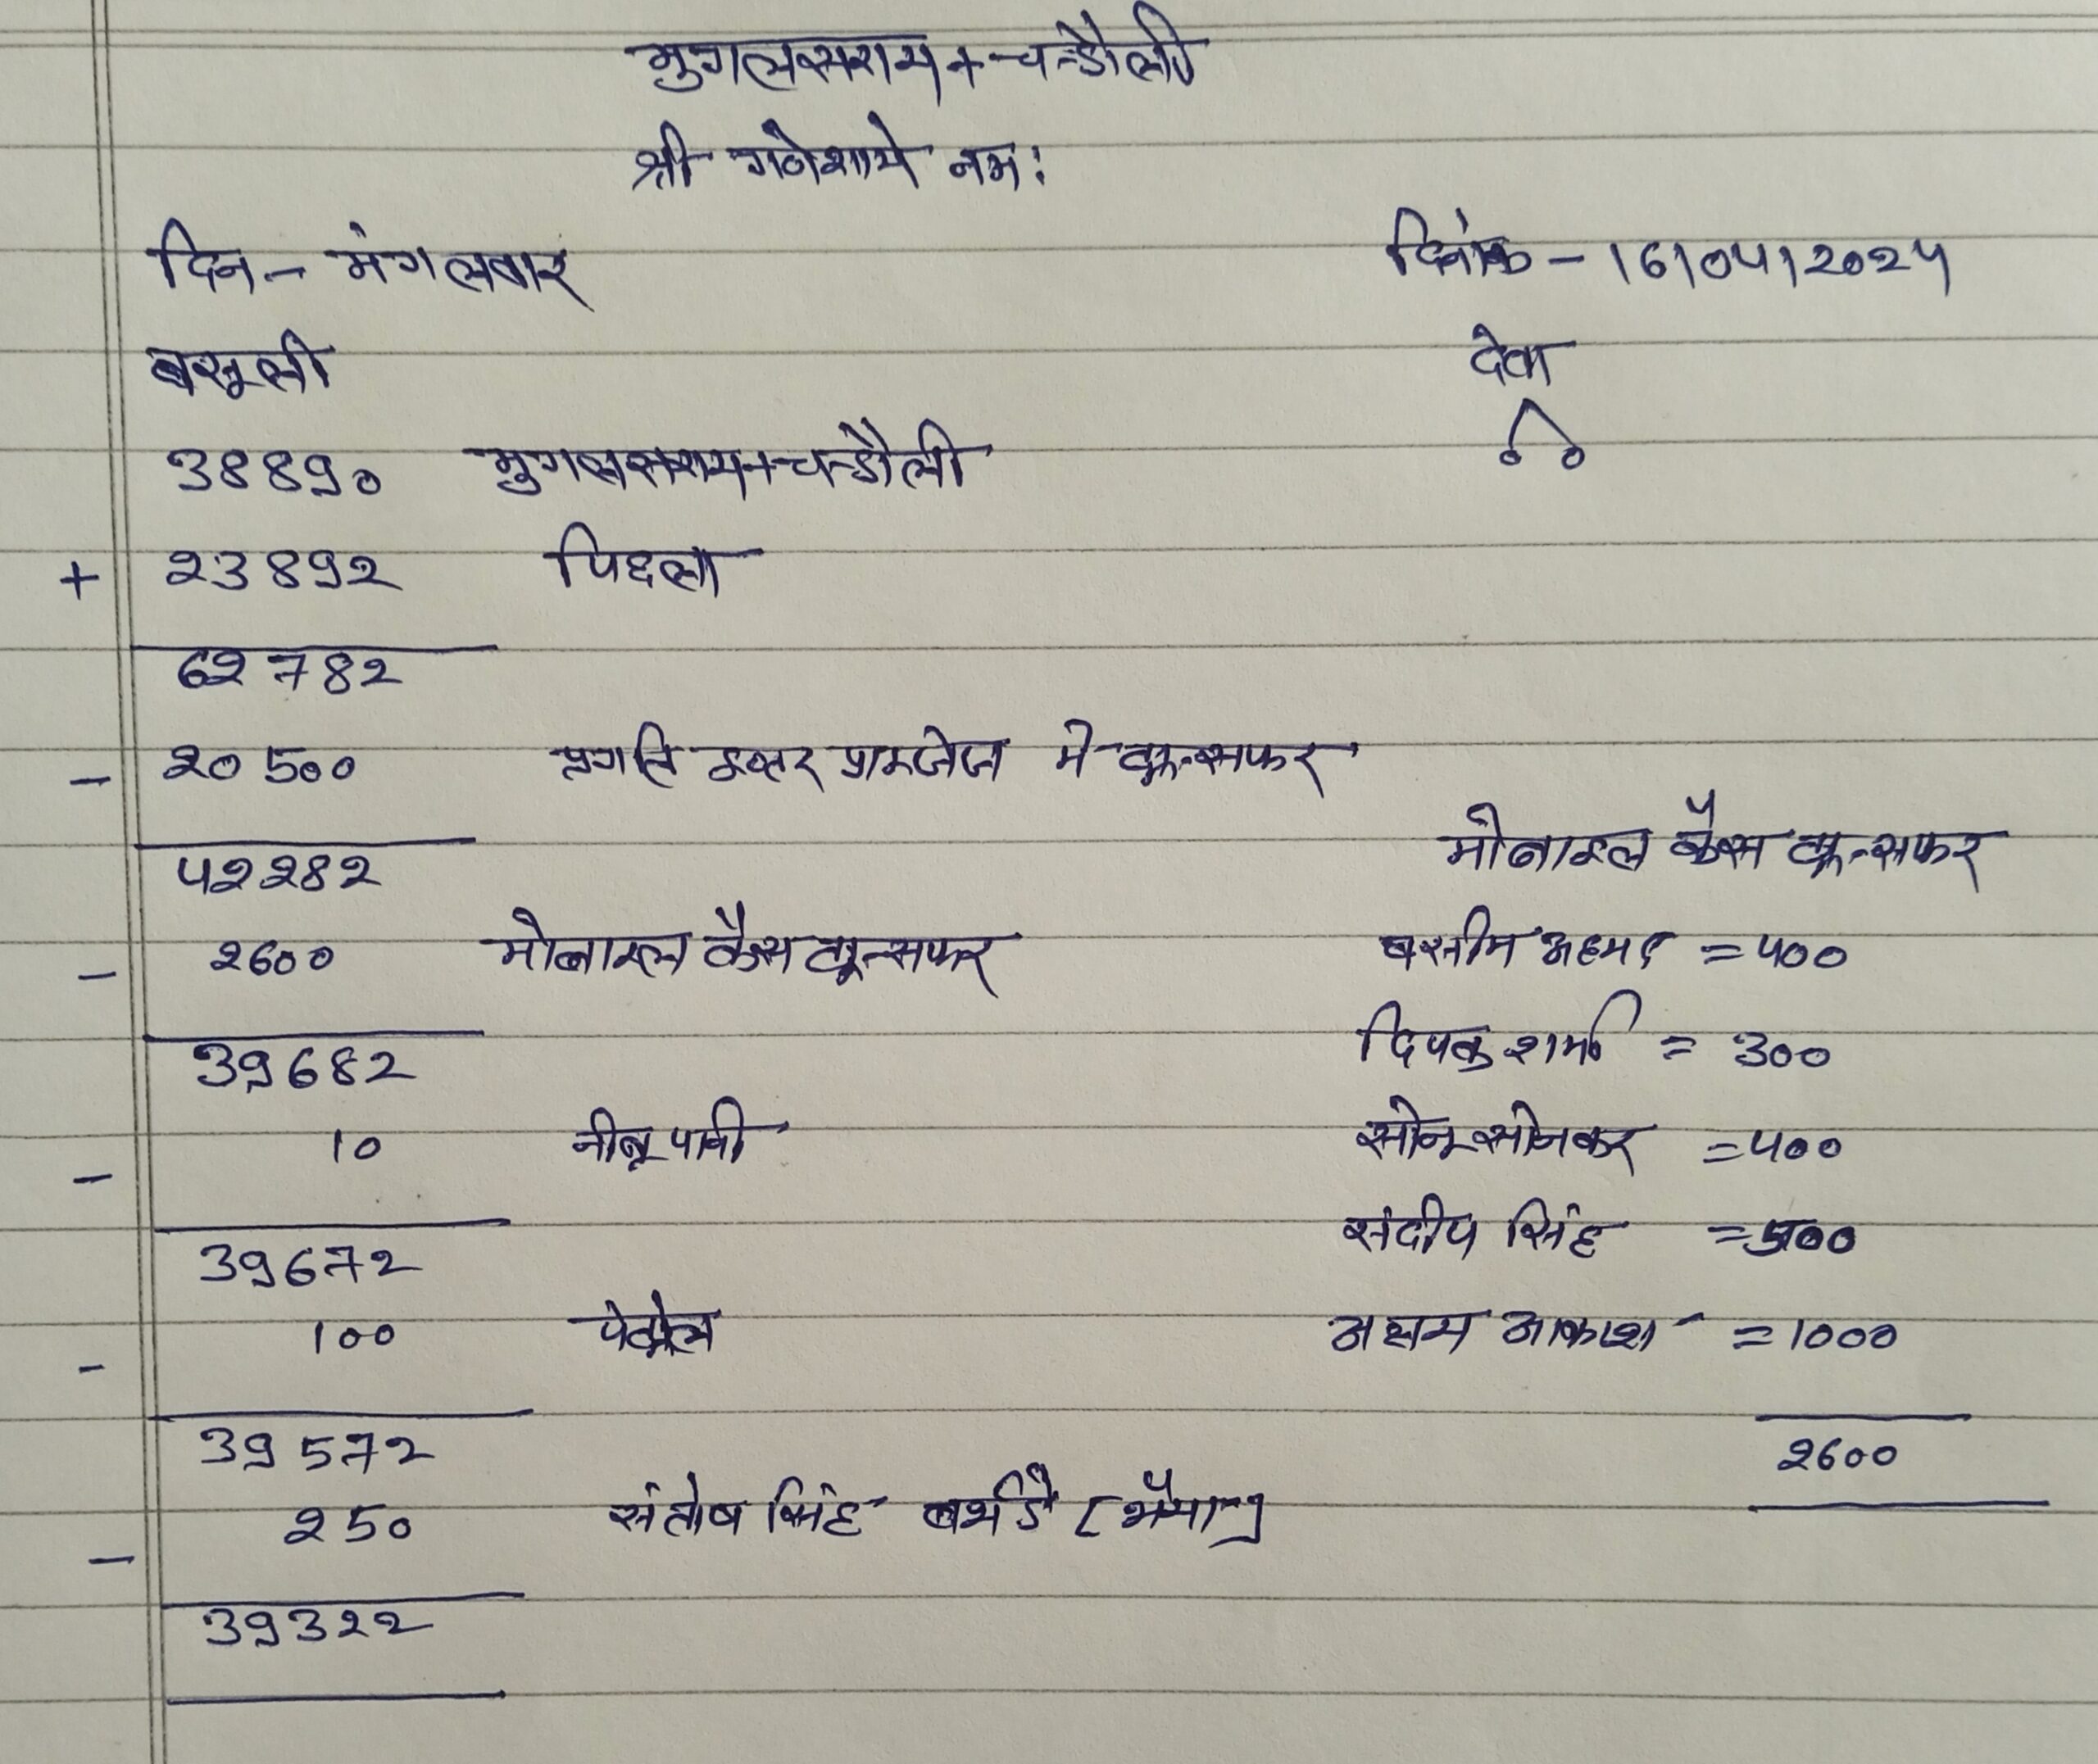 मुगलसराय + चन्डौली
श्री गणेशाये नमः
दिन - मंगलबार दिनांक - 16/04/2024
बसूली देवा
38890 मुगलसराय + चन्डौली
+ 23892 पिछला
62782
- 20500 प्रगति इन्टर प्राइजेज मे ट्रान्सफर
42282 मोबाइल कैस ट्रान्सफर
- 2600 मोबाइल कैस ट्रान्सफर बसीम अहमद = 400
39682 दिपक शर्मा = 300
- 10 नीबू पानी सोनू सोनकर = 400
39672 संदीप सिंह = 500
- 100 पेट्रोल आकाश = 1000
39572 2600
- 250 संतोष सिंह बर्थडे (भैया)
39322